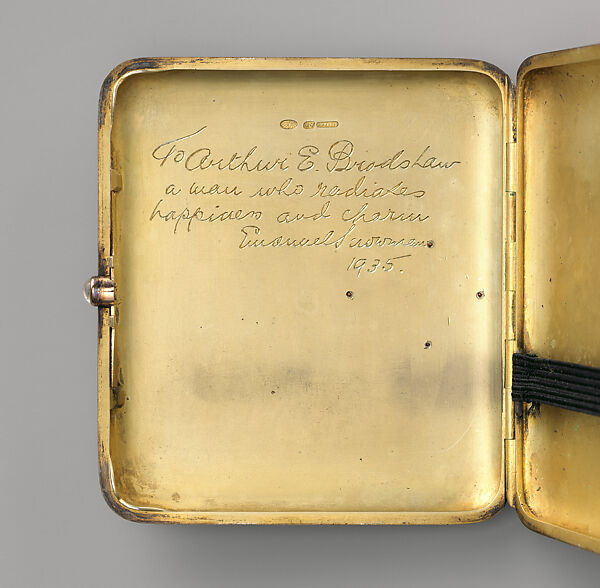 To Arthur E. Bradshaw
a man who radiates
happiness and charm
Emanuel Snowman
1935.